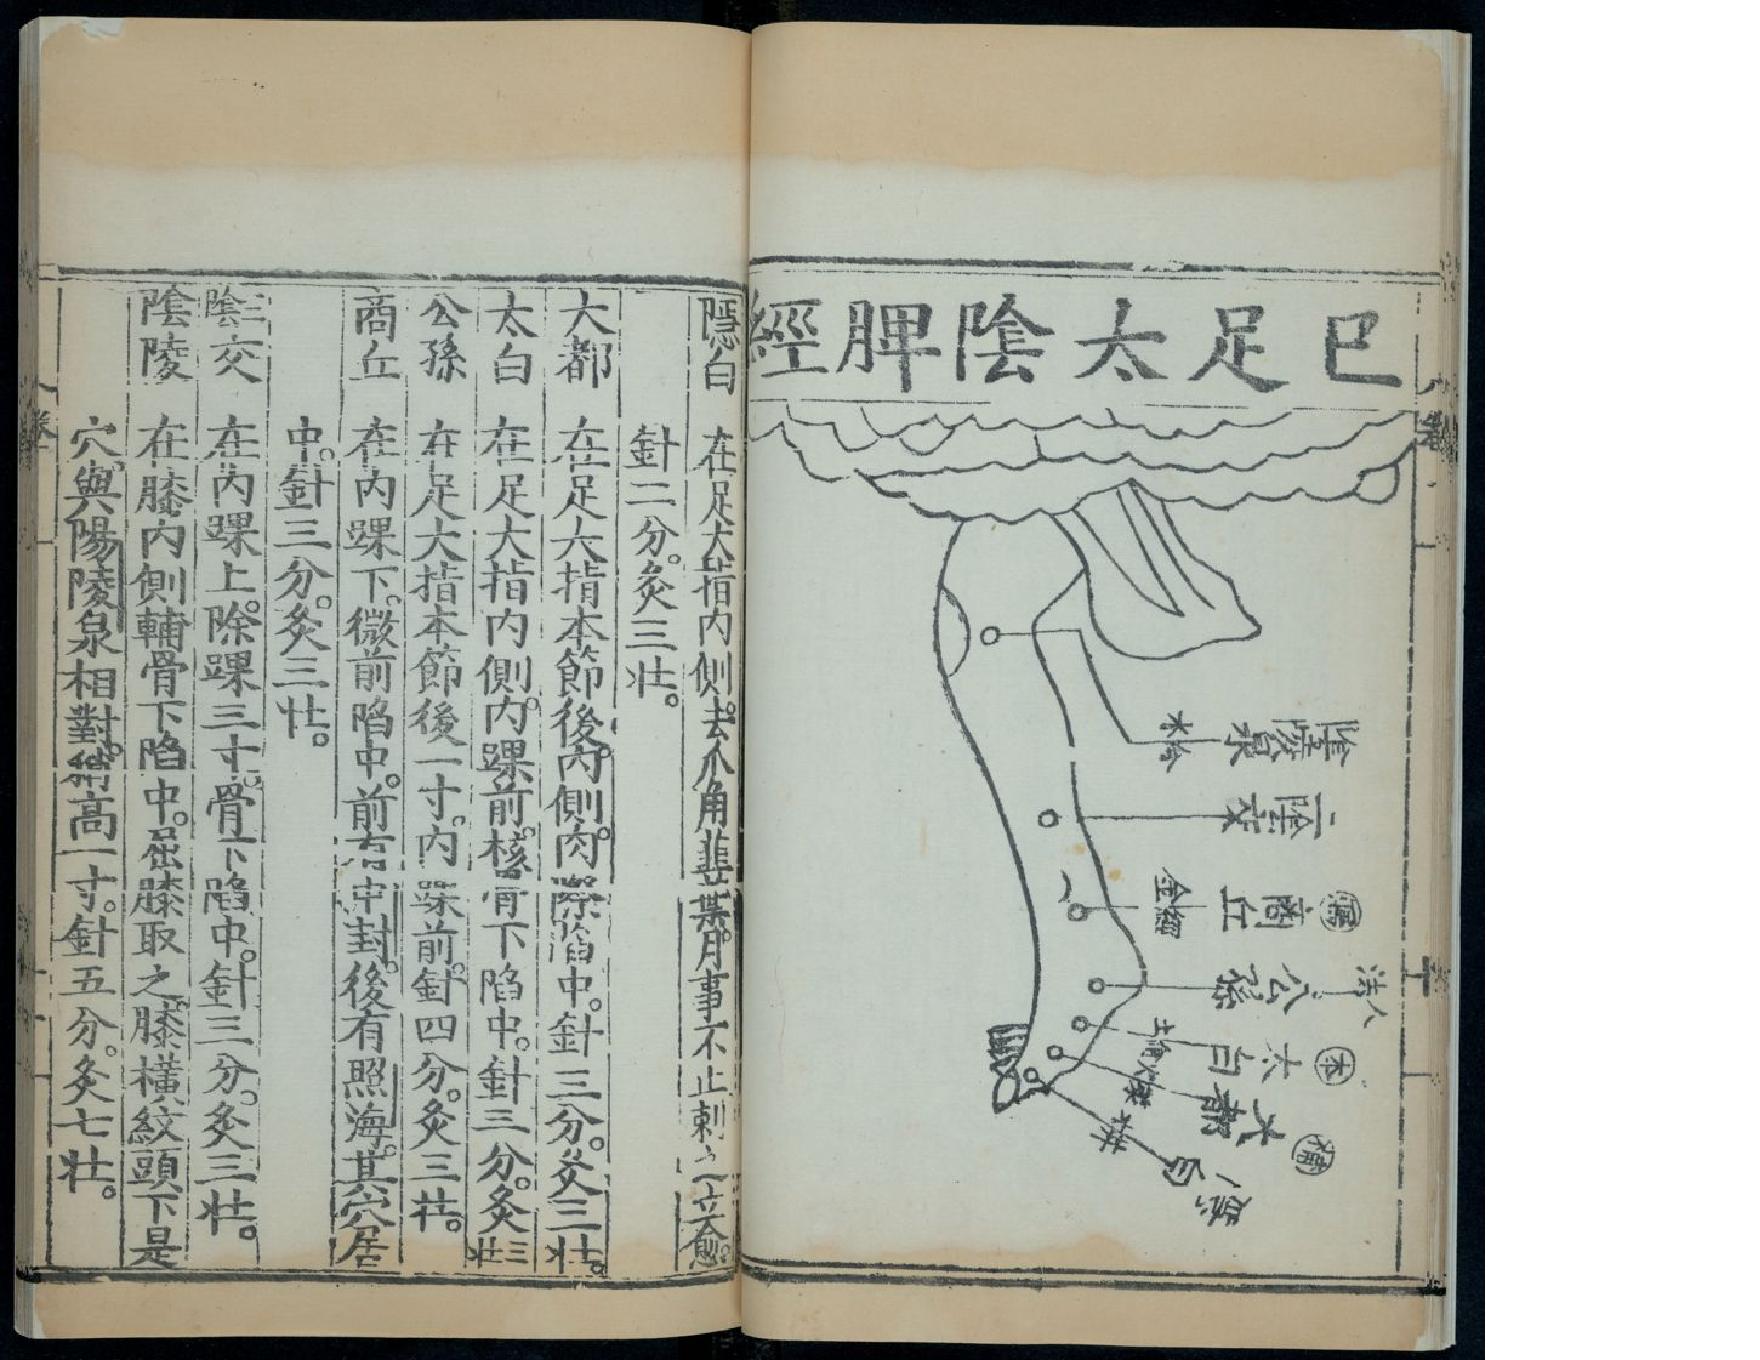 巳足太陰脾經
陰陵泉 水合
三陰交
商丘 金經 瀉
公孫 八法
太白 土俞 本
大都 火榮 補
隱白 木井
隱白 在足大指內側去爪角韭葉月事不止刺之立愈
針二分灸三壯
大都 在足大指本節後內側肉際陷中針三分灸三壯
太白 在足大指內側內踝前核骨下陷中針三分灸三壯
公孫 在足大指本節後一寸內踝前針四分灸三壯
商丘 在內踝下微前陷中前有中封後有照海其穴居
中針三分灸三壯
三陰交 在內踝上除踝三寸骨下陷中針三分灸三壯
陰陵 在膝內側輔骨下陷中屈膝取之膝橫紋頭下是
穴與陽陵泉相對稍高一寸針五分灸七壯